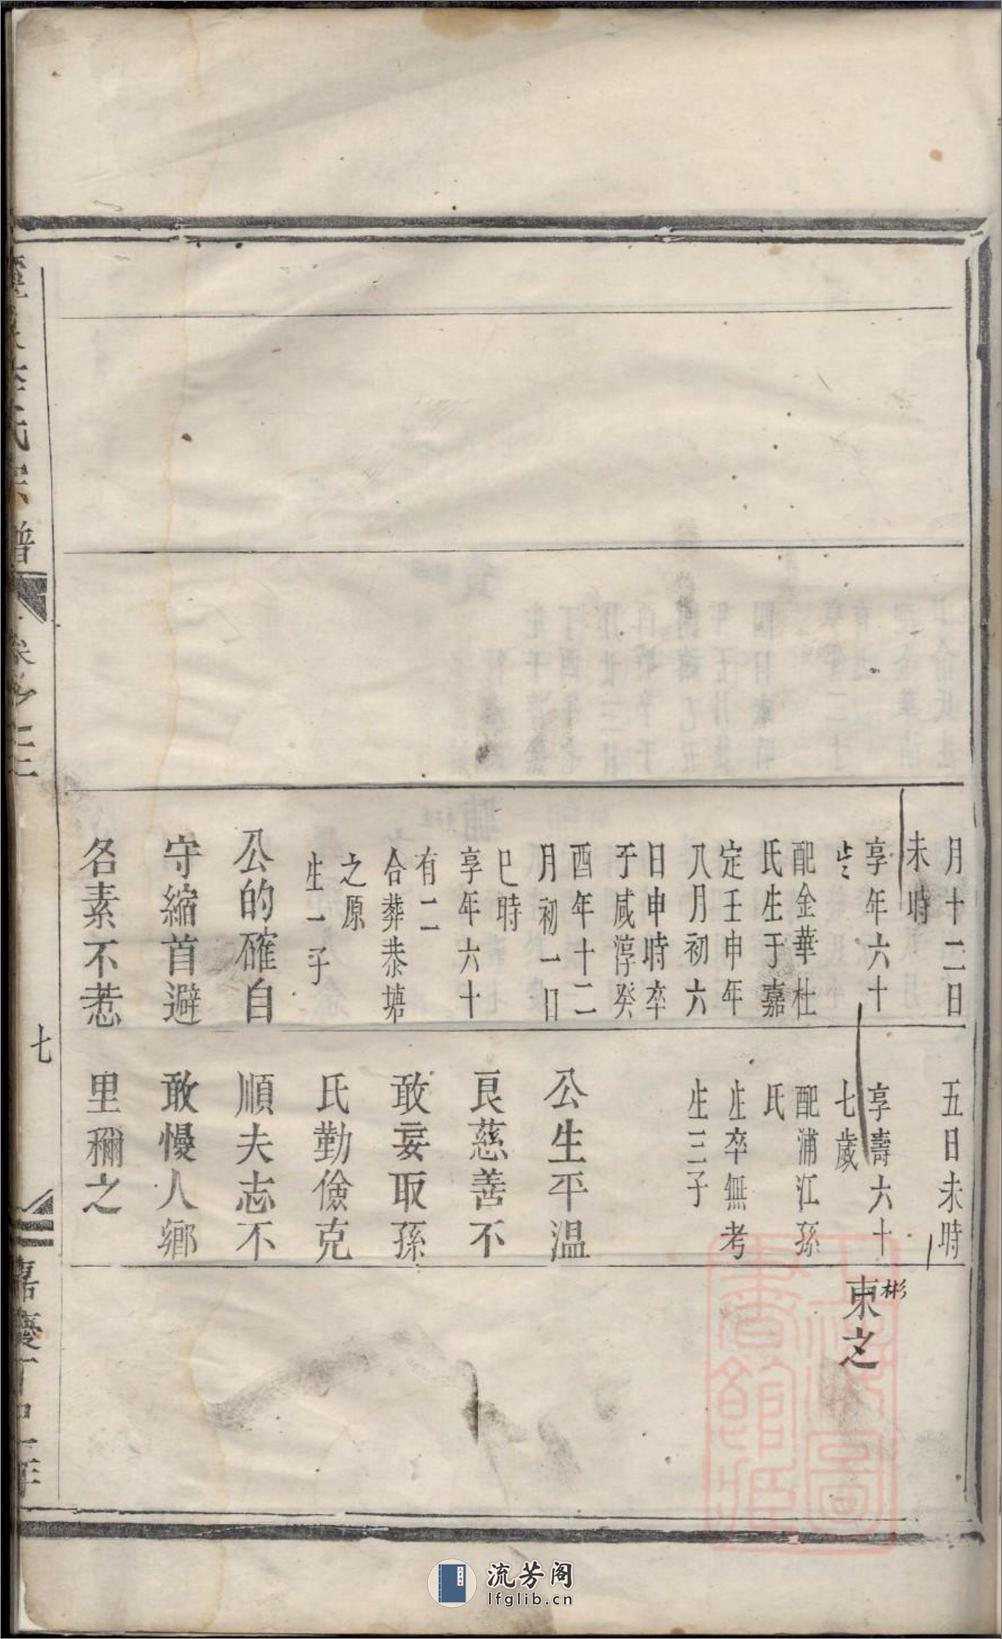 月十二日
未時
享年六十
配金華杜
氏生于嘉
定壬申年
八月初六
日申時卒
于咸淳癸
酉年十二
月初一日
巳時
享年六十
有二
合葬恭塘
之原
生一子
公的確自
守縮首避
名素不惹
五日未時
享壽六十
七歲
配浦江孫
氏
生卒無考
生三子
公生平温
良慈善不
敢妄取孫
氏勤儉克
順夫志不
敢慢人鄉
里稱之
彬
東之
李氏宗譜
卷之二
七
嘉慶
流芳阁
lfglib.cn